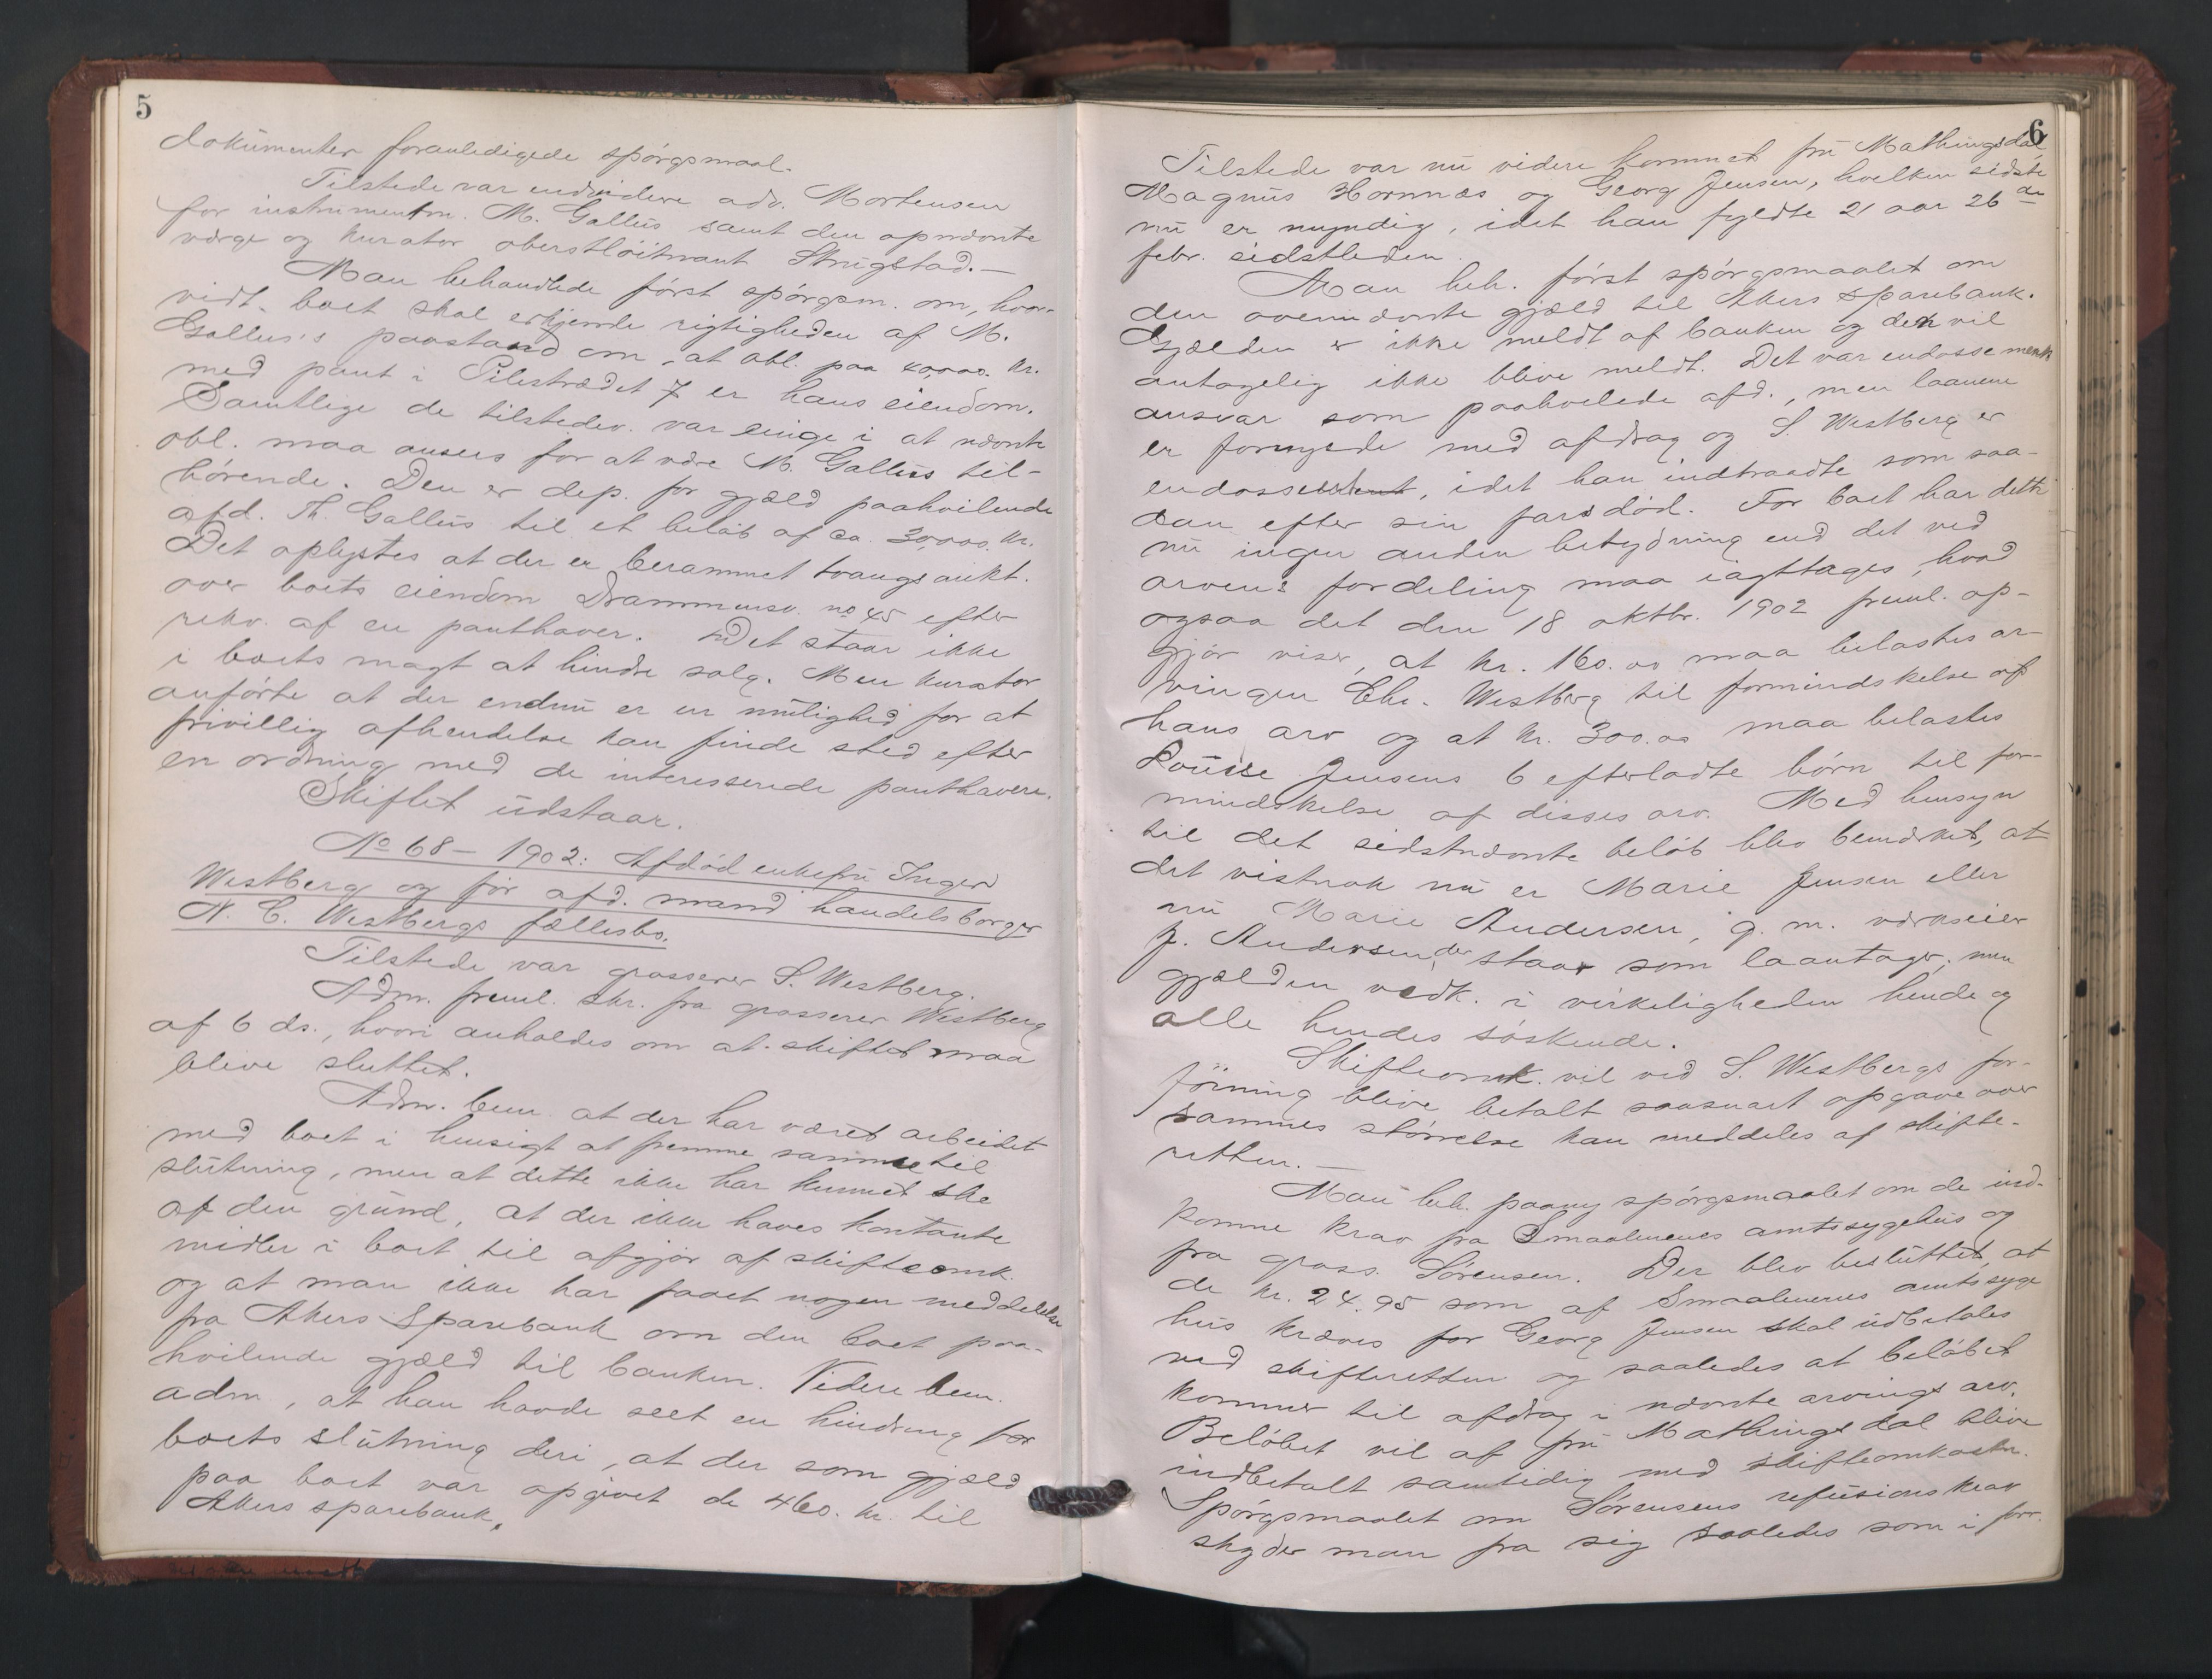 5
dokumenter foranledigede spørgsmaal.
Tilstede var endvidere adv. Mortensen
for instrumentm. M. Gallus samt den opnævnte
værge og kurator oberstløitnant Strugstad.—
Man behandlede først spørgsm. om, hvor-
vidt boet skal erkjende rigtigheden af M.
Gallus's paastand om, at obl. paa 40,000. kr.
med pant i Pilestrædet 7 er hans eiendom.
Samtlige de tilstedev. var enige i at nævnte
obl. maa ansees for at være M. Gallus til-
hørende. Den er dep. for gjæld paahvilende
afd. Th. Gallus til et beløb af ca. 30,000. kr.
Det oplystes at der er berammet tvangsaukt.
over boets eiendom Drammensv. no 45 efter
rekv. af en panthaver. Det staar ikke
i boets magt at hindre salg. Men kurator
anførte at der endnu er en mulighed for at
frivillig afhendelse kan finde sted efter
en ordning med de interesserede panthavere.
Skiftet udstaar.
No 68 – 1902: Afdød enkefru Inger
Westberg og før afd. mand handelsborger
N. C. Westbergs fællesbo.
Tilstede var grosserer S. Westberg.
Adm. freml. skr. fra grosserer Westberg
af 6 ds., hvori anholdes om at skiftet maa
blive sluttet.
Adm. bem. at der har været arbeidet
med boet i hensigt at fremme samme til
slutning, men at dette ikke har kunnet ske
af den grund, at der ikke haves kontante
midler i boet til afgjør af skifteomk.
og at man ikke har faaet nogen meddelelse
fra Akers Sparebank om den boet paa-
hvilende gjæld til banken. Videre bem.
adm, at han havde seet en hindring for
boets slutning deri, at der som gjæld
paa boet var opgivet de 460. kr. til
Akers sparebank.
6
Tilstede var nu videre kommet fru Mathingsdal
Magnus Hornnæs og Georg Jensen, hvilken sidste
nu er myndig, idet han fyldte 21 aar 26de
febr. sidstleden.
Man beh. først spørgsmaalet om
den ovennævnte gjæld til Akers sparebank.
Gjælden er ikke meldt af banken og den vil
antagelig ikke blive meldt. Det var endossements
ansvar som paahvilede afd., men laanene
er fornyede med afdrag og S. Westberg er
endossent, idet han indtraadte som saa-
dan efter sin fars død. For boet har dette
nu ingen anden betydning end det ved
arvens fordeling maa iagttages, hvad
ogsaa det den 18 oktbr. 1902 freml. op-
gjør viser, at kr. 160.00 maa belastes ar-
vingen Chr. Westberg til formindskelse af
hans arv og at kr. 300.00 maa belastes
Louise Jensens 6 efterladte børn til for-
mindskelse af disses arv. Med hensyn
til det sidstnævnte beløb blev bemærket, at
det vistnok nu er Marie Jensen eller
nu Marie Andersen, g. m. værkseier
J. Andersen, der staar som laantager, men
gjælden vedk. i virkeligheden hende og
alle hendes søskende.
Skifteomk. vil ved S. Westbergs for-
føining blive betalt saasnart opgave over
sammes størrelse kan meddeles af skifte-
retten.—
Man beh. paany spørgsmaalet om de ind-
komne krav fra Smaalenenes amtssygehus og
fra gross. Sørensen. Der blev besluttet, at
de kr. 24.95 som af Smaalenenes amtssyge
hus kræves for Georg Jensen skal udbetales
ved skifteretten og saaledes at beløbet
kommer til afdrag i nævnte arvings arv.
Beløbet vil af fru Mathingsdal blive
indbetalt samtidig med skifteomkostn.
Spørgsmaalet om Sørensens refusionskrav
skyder man fra sig saaledes som i forr.